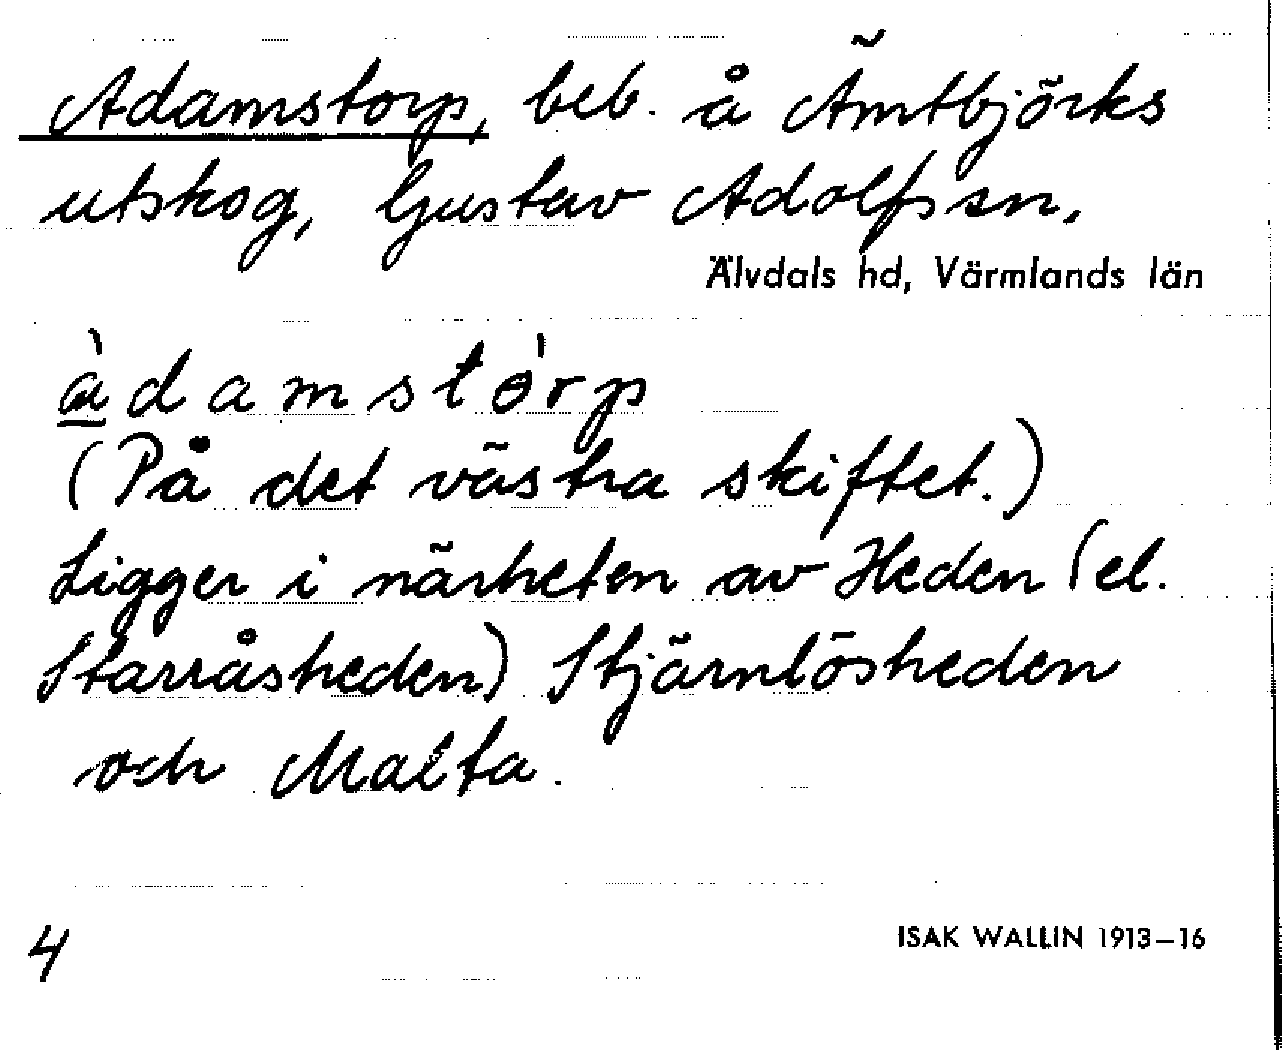 Adamstorp, beb. å Ämtbjörks
utskog, Gustav Adolfs sn.
Älvdals hd, Värmlands län
àdamstòrp
(På det västra skiftet.)
Ligger i närheten av Heden (el.
Starråsheden) Stjärnlösheden
och Malta.
4
ISAK WALLIN 1913–16